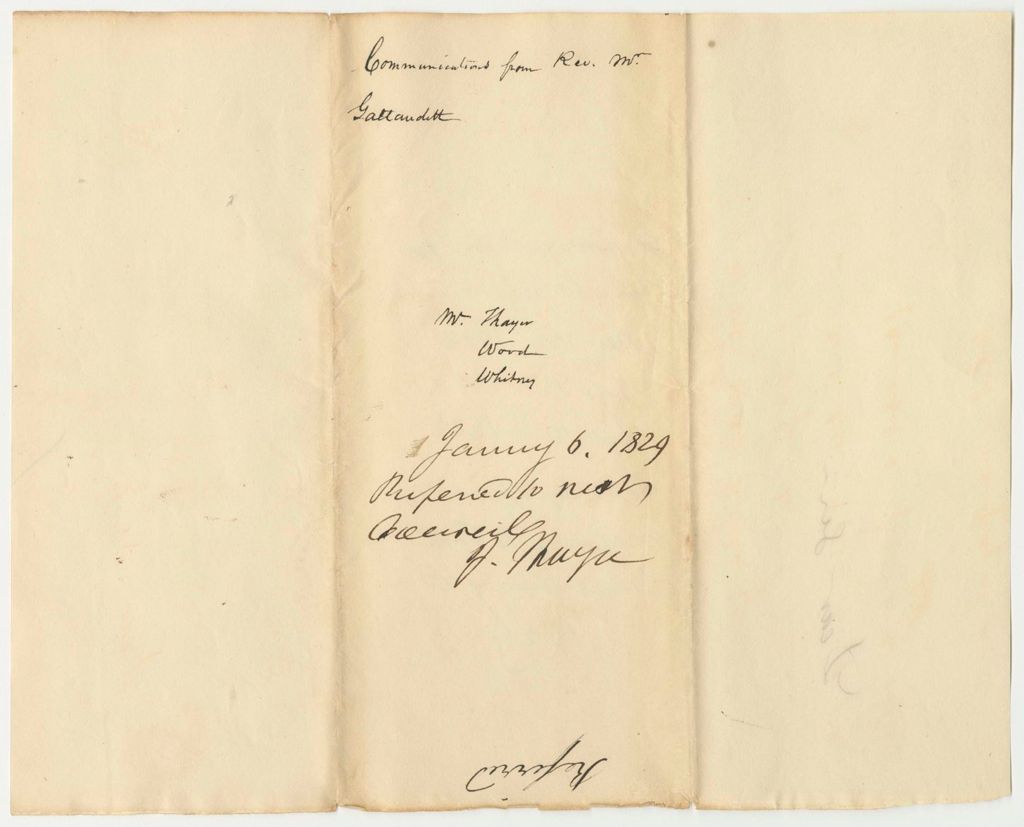 Communications from Rev. Mr.
Gallaudett
Mr. Thayer
Word
Whitney
Janury 6. 1829
Refered to next
Council
S. Thayer
Referred